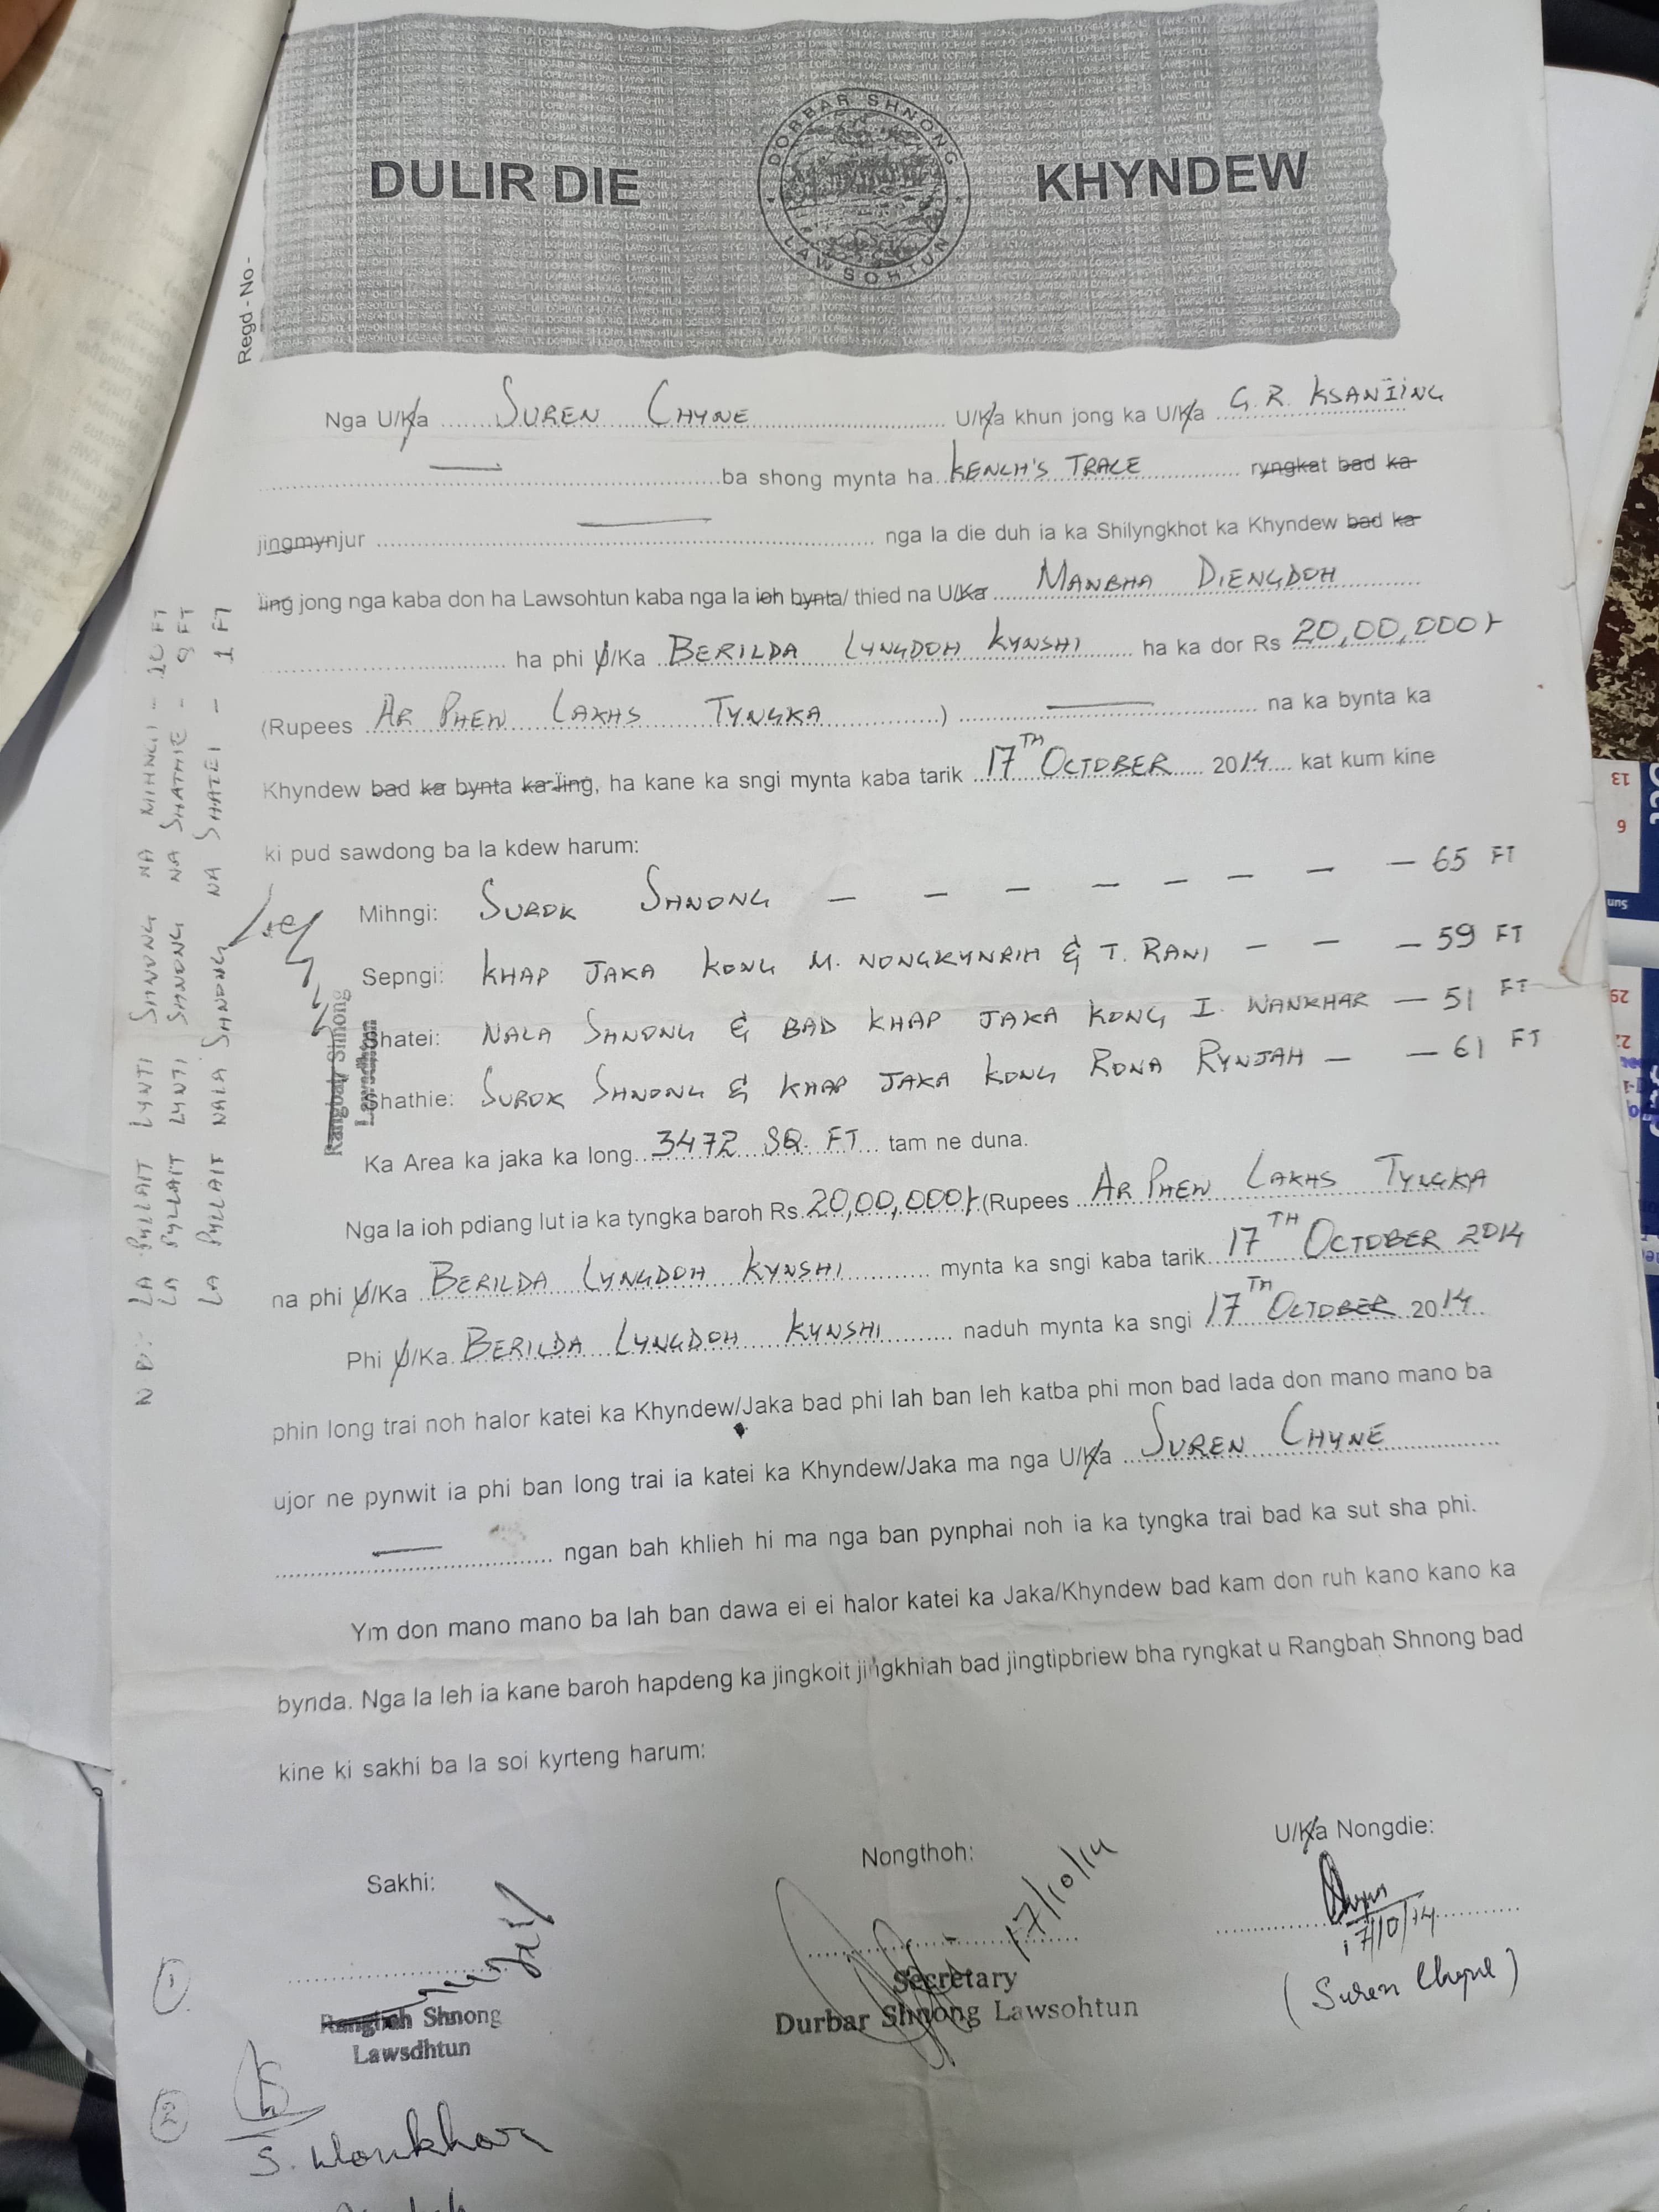 DULIR DIE KHYNDEW
DORBAR SHNONG LAWSOHTUN
Regd - No -
Nga U/Ka SUREN CHYNE U/Ka khun jong ka U/Ka G. R. KSANÏING
ba shong mynta ha KENCH'S TRACE ryngkat bad ka
jingmynjur nga la die duh ia ka Shilyngkhot ka Khyndew bad ka
ïing jong nga kaba don ha Lawsohtun kaba nga la ioh bynta/ thied na U/Ka MANBHA DIENGDOH
ha phi U/Ka BERILDA LYNGDOH KYNSHI ha ka dor Rs 20,00,000/-
(Rupees AR PHEW LAKHS TYNGKA ) na ka bynta ka
Khyndew bad ka bynta ka ïing, ha kane ka sngi mynta kaba tarik 17TH OCTOBER 2014 kat kum kine
ki pud sawdong ba la kdew harum:
Mihngi: SUROK SHNONG - - - - - - - - 65 FT
Sepngi: KHAP JAKA KONG M. NONGKYNRIH & T. RANI - - - 59 FT
Shatei: NALA SHNONG & BAD KHAP JAKA KONG I. WANKHAR - 51 FT
Shathie: SUROK SHNONG & KHAP JAKA KONG RONA RYNJAH - - 61 FT
Ka Area ka jaka ka long 3472 SQ. FT tam ne duna.
Nga la ioh pdiang lut ia ka tyngka baroh Rs. 20,00,000/- (Rupees AR PHEW LAKHS TYNGKA
na phi U/Ka BERILDA LYNGDOH KYNSHI mynta ka sngi kaba tarik 17TH OCTOBER 2014
Phi U/Ka BERILDA LYNGDOH KYNSHI naduh mynta ka sngi 17TH OCTOBER 2014
phin long trai noh halor katei ka Khyndew/Jaka bad phi lah ban leh katba phi mon bad lada don mano mano ba
ujor ne pynwit ia phi ban long trai ia katei ka Khyndew/Jaka ma nga U/Ka SUREN CHYNE
ngan bah khlieh hi ma nga ban pynphai noh ia ka tyngka trai bad ka sut sha phi.
Ym don mano mano ba lah ban dawa ei ei halor katei ka Jaka/Khyndew bad kam don ruh kano kano ka
bynda. Nga la leh ia kane baroh hapdeng ka jingkoit jingkhiah bad jingtipbriew bha ryngkat u Rangbah Shnong bad
kine ki sakhi ba la soi kyrteng harum:
NB: LA PYLLAIT LYNTI SHNONG NA MIHNGI - 10 FT
LA PYLLAIT LYNTI SHNONG NA SHATHIE - 9 FT
LA PYLLAIT NALA SHNONG NA SHATEI - 1 FT
Rangbah Shnong
Lawsohtun
Sakhi:
Nongthoh:
U/Ka Nongdie:
17/10/14
17/10/14
(Suren Chyne)
1
Rangbah Shnong
Lawsohtun
Secretary
Durbar Shnong Lawsohtun
2
S. Wankhar